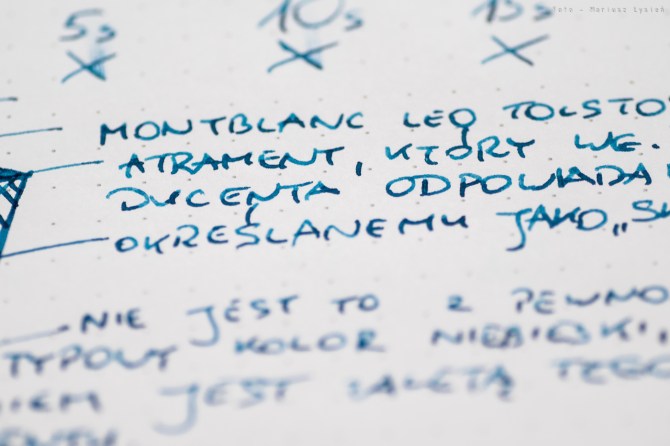 5s 10s 15s
Foto - Mariusz Łysień
MONTBLANC LEO TOLSTO
ATRAMENT, KTÓRY WE.
DUCENTA ODPOWIADA
OKREŚLANEMU JAKO „S
NIE JEST TO Z PEWNO
TYPOWY KOLOR NIEBIESKI,
JEST ZALETĄ TEGO